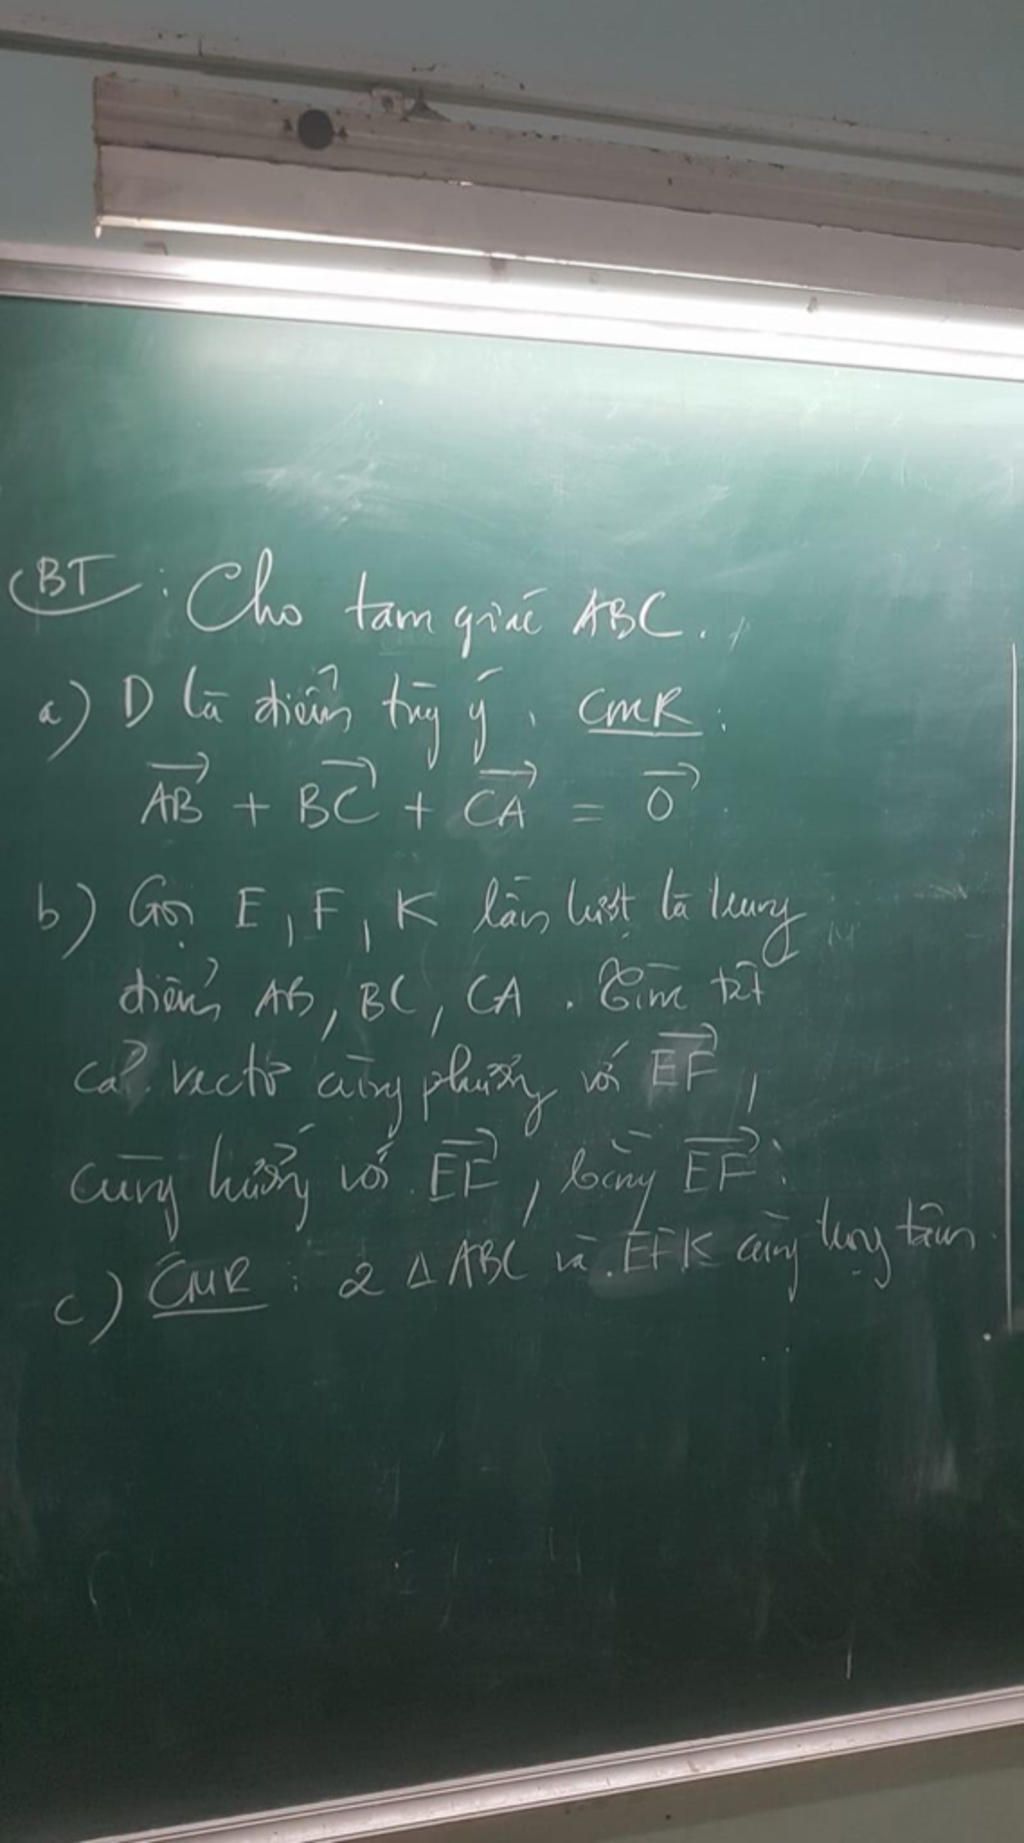 BT : Cho tam giác ABC.
a) D là điểm tùy ý, CMR :
$\overrightarrow{AB} + \overrightarrow{BC} + \overrightarrow{CA} = \overrightarrow{0}$
b) Gọi E, F, K lần lượt là trung
điểm AB, BC, CA. Tìm tất
cả vectơ cùng phương với $\overrightarrow{EF}$,
cùng hướng với $\overrightarrow{EF}$, bằng $\overrightarrow{EF}$.
c) CMR : 2 Δ ABC và EFK cùng trọng tâm.